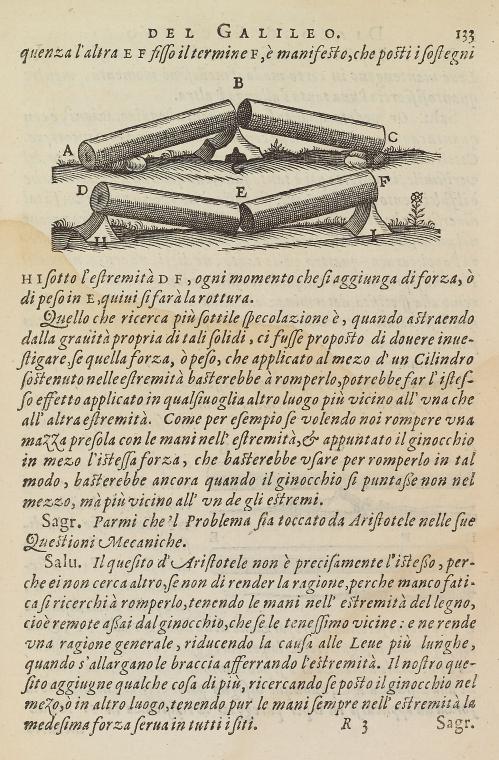 DEL GALILEO. 133
quenza l'altra E F fiſſo il termine F, è manifeſto, che poſti i ſoſtegni
B
A
C
G
D
E
F
H
I
H I ſotto l'eſtremità D F, ogni momento che ſi aggiunga di forza, ò
di peſo in E, quiui ſi farà la rottura.
Quello che ricerca più ſottile ſpecolazione è, quando aſtraendo
dalla grauità propria di tali ſolidi, ci fuſſe propoſto di douere inue-
ſtigare, ſe quella forza, ò peſo, che applicato al mezo d'un Cilindro
ſoſtenuto nelle eſtremità baſterebbe à romperlo, potrebbe far l'iſteſ-
ſo effetto applicato in qualſiuoglia altro luogo più vicino all' vna che
all' altra eſtremità. Come per eſempio ſe volendo noi rompere vna
mazza preſola con le mani nell' eſtremità, & appuntato il ginocchio
in mezo l'iſteſſa forza, che baſterebbe vſare per romperlo in tal
modo, baſterebbe ancora quando il ginocchio ſi puntaſſe non nel
mezzo, mà più vicino all' vn de gli eſtremi.
Sagr. Parmi che'l Problema ſia toccato da Ariſtotele nelle ſue
Queſtioni Mecaniche.
Salu. Il queſito d'Ariſtotele non è preciſamente l'iſteſſo, per-
che ei non cerca altro, ſe non di render la ragione, perche manco fati-
ca ſi ricerchi à romperlo, tenendo le mani nell' eſtremità del legno,
cioè remote aſſai dal ginocchio, che ſe le teneſſimo vicine: e ne rende
vna ragione generale, riducendo la cauſa alle Leue più lunghe,
quando s'allargano le braccia afferrando l'eſtremità. Il noſtro que-
ſito aggiugne qualche coſa di più, ricercando ſe poſto il ginocchio nel
mezo, ò in altro luogo, tenendo pur le mani ſempre nell' eſtremità la
medeſima forza ſerua in tutti i ſiti. R 3 Sagr.